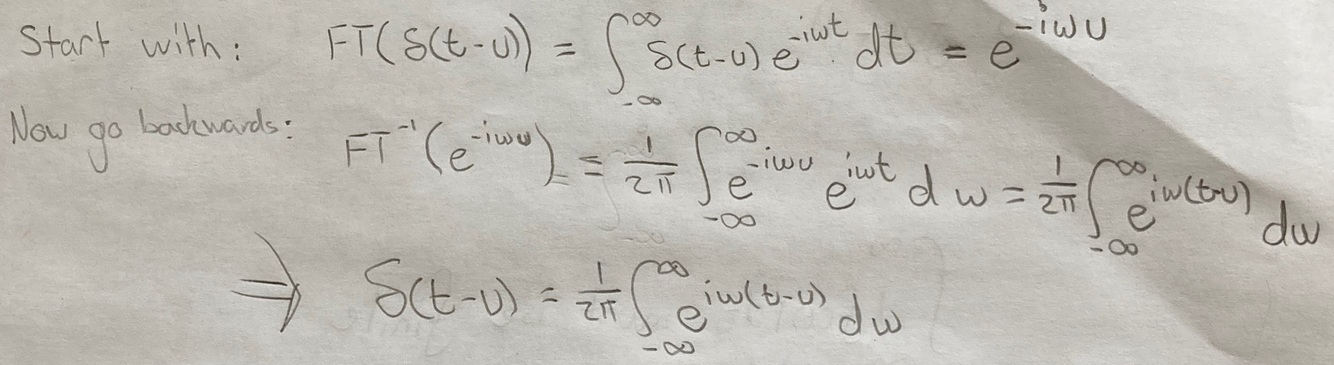 Start with: FT(δ(t-u)) = ∫_{-∞}^{∞} δ(t-u) e^{-iωt} dt = e^{-iωu}
Now go backwards: FT^{-1}(e^{-iωu}) = \frac{1}{2π} ∫_{-∞}^{∞} e^{-iωu} e^{iωt} dω = \frac{1}{2π} ∫_{-∞}^{∞} e^{iω(t-u)} dω
⇒ δ(t-u) = \frac{1}{2π} ∫_{-∞}^{∞} e^{iω(t-u)} dω